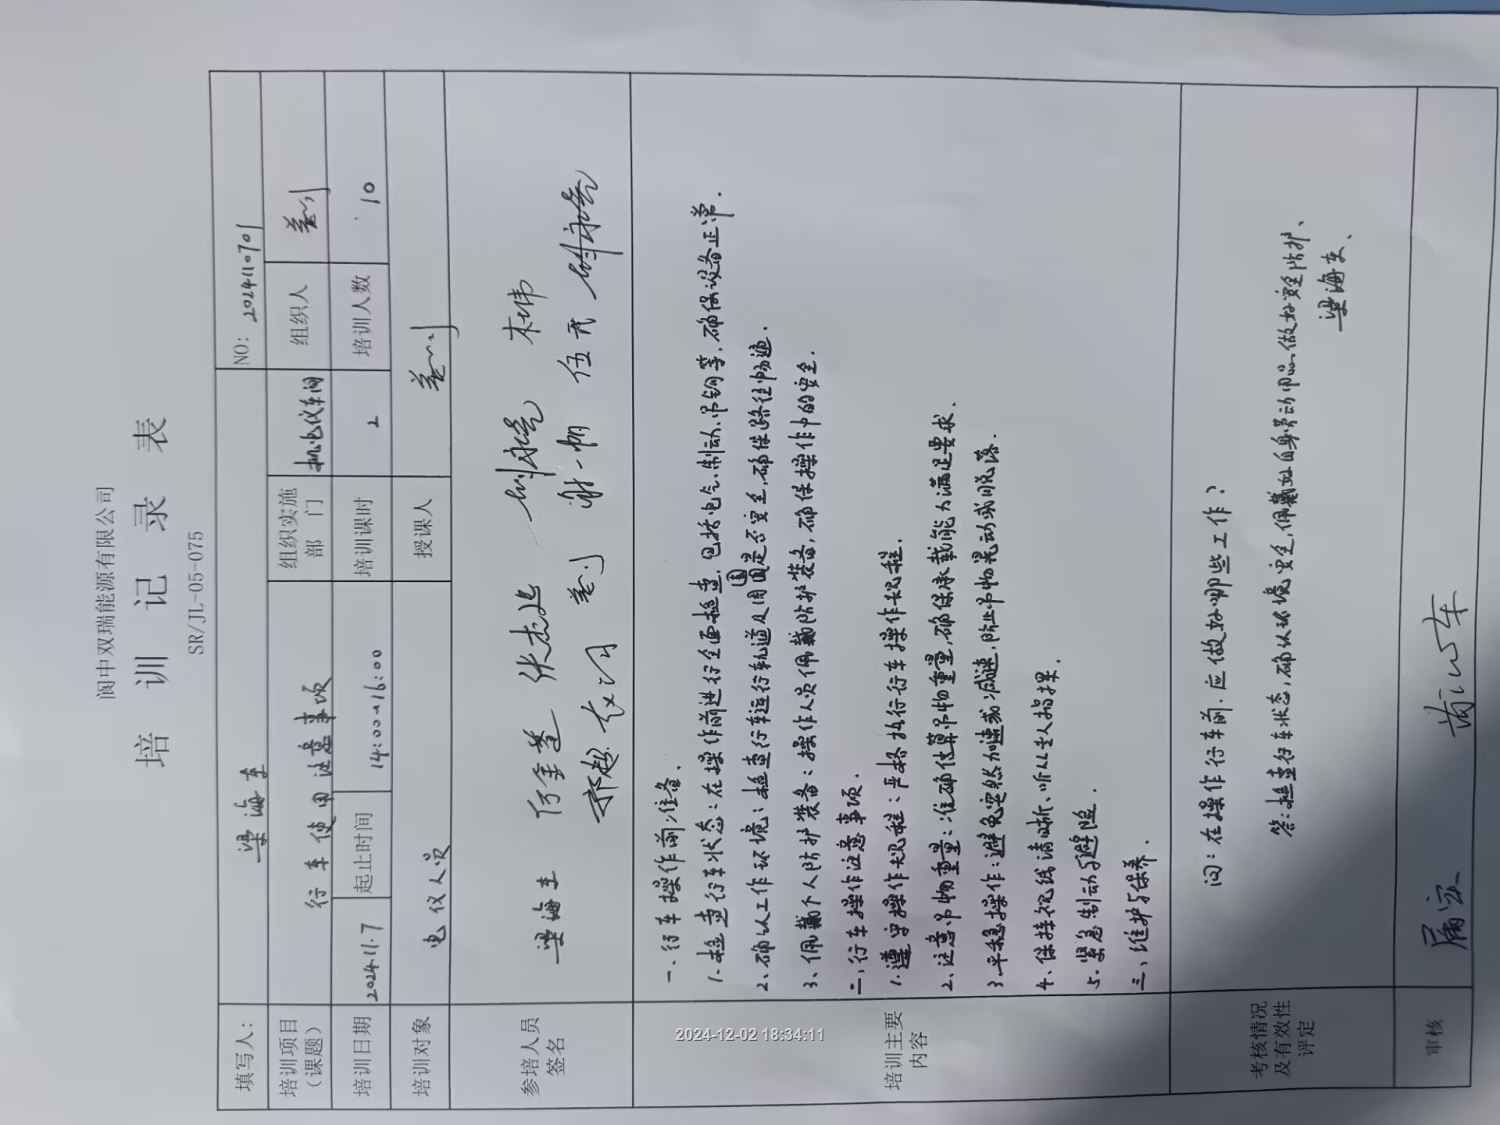 阆中双瑞能源有限公司
培 训 记 录 表
SR/JL-05-075
填写人： 梁海东 NO: 2024110701
培训项目（课题） 行车使用注意事项 组织实施部门 机电仪车间 组织人
培训日期 2024.11.7 起止时间 14:00-16:00 培训课时 2 培训人数 10
培训对象 电仪人员 授课人
参培人员签名
梁海东
培训主要内容
一、行车操作前准备.
1.检查行车状态:在操作前进行全面检查,包括电气、制动、吊钩等,确保设备正常.
2、确认工作环境:检查行车运行轨道及周围是否安全,确保路径畅通.
3、佩戴个人防护装备:操作人员佩戴防护装备,确保操作中的安全.
二,行车操作注意事项.
1.遵守操作规程:严格执行行车操作规程.
2、注意吊物重量:准确估算吊物重量,确保承载能力满足要求.
3.平稳操作:避免突然加速或减速,防止吊物晃动或脱落.
4、保持视线清晰、听从专人指挥.
5.紧急制动与避险.
三、维护与保养.
考核情况及有效性评定
问:在操作行车前.应做好哪些工作?
答:检查行车状态,确认环境安全,佩戴好自身劳动用品.做好安全防护、
梁海东、
审核
2024-12-02 18:34:11